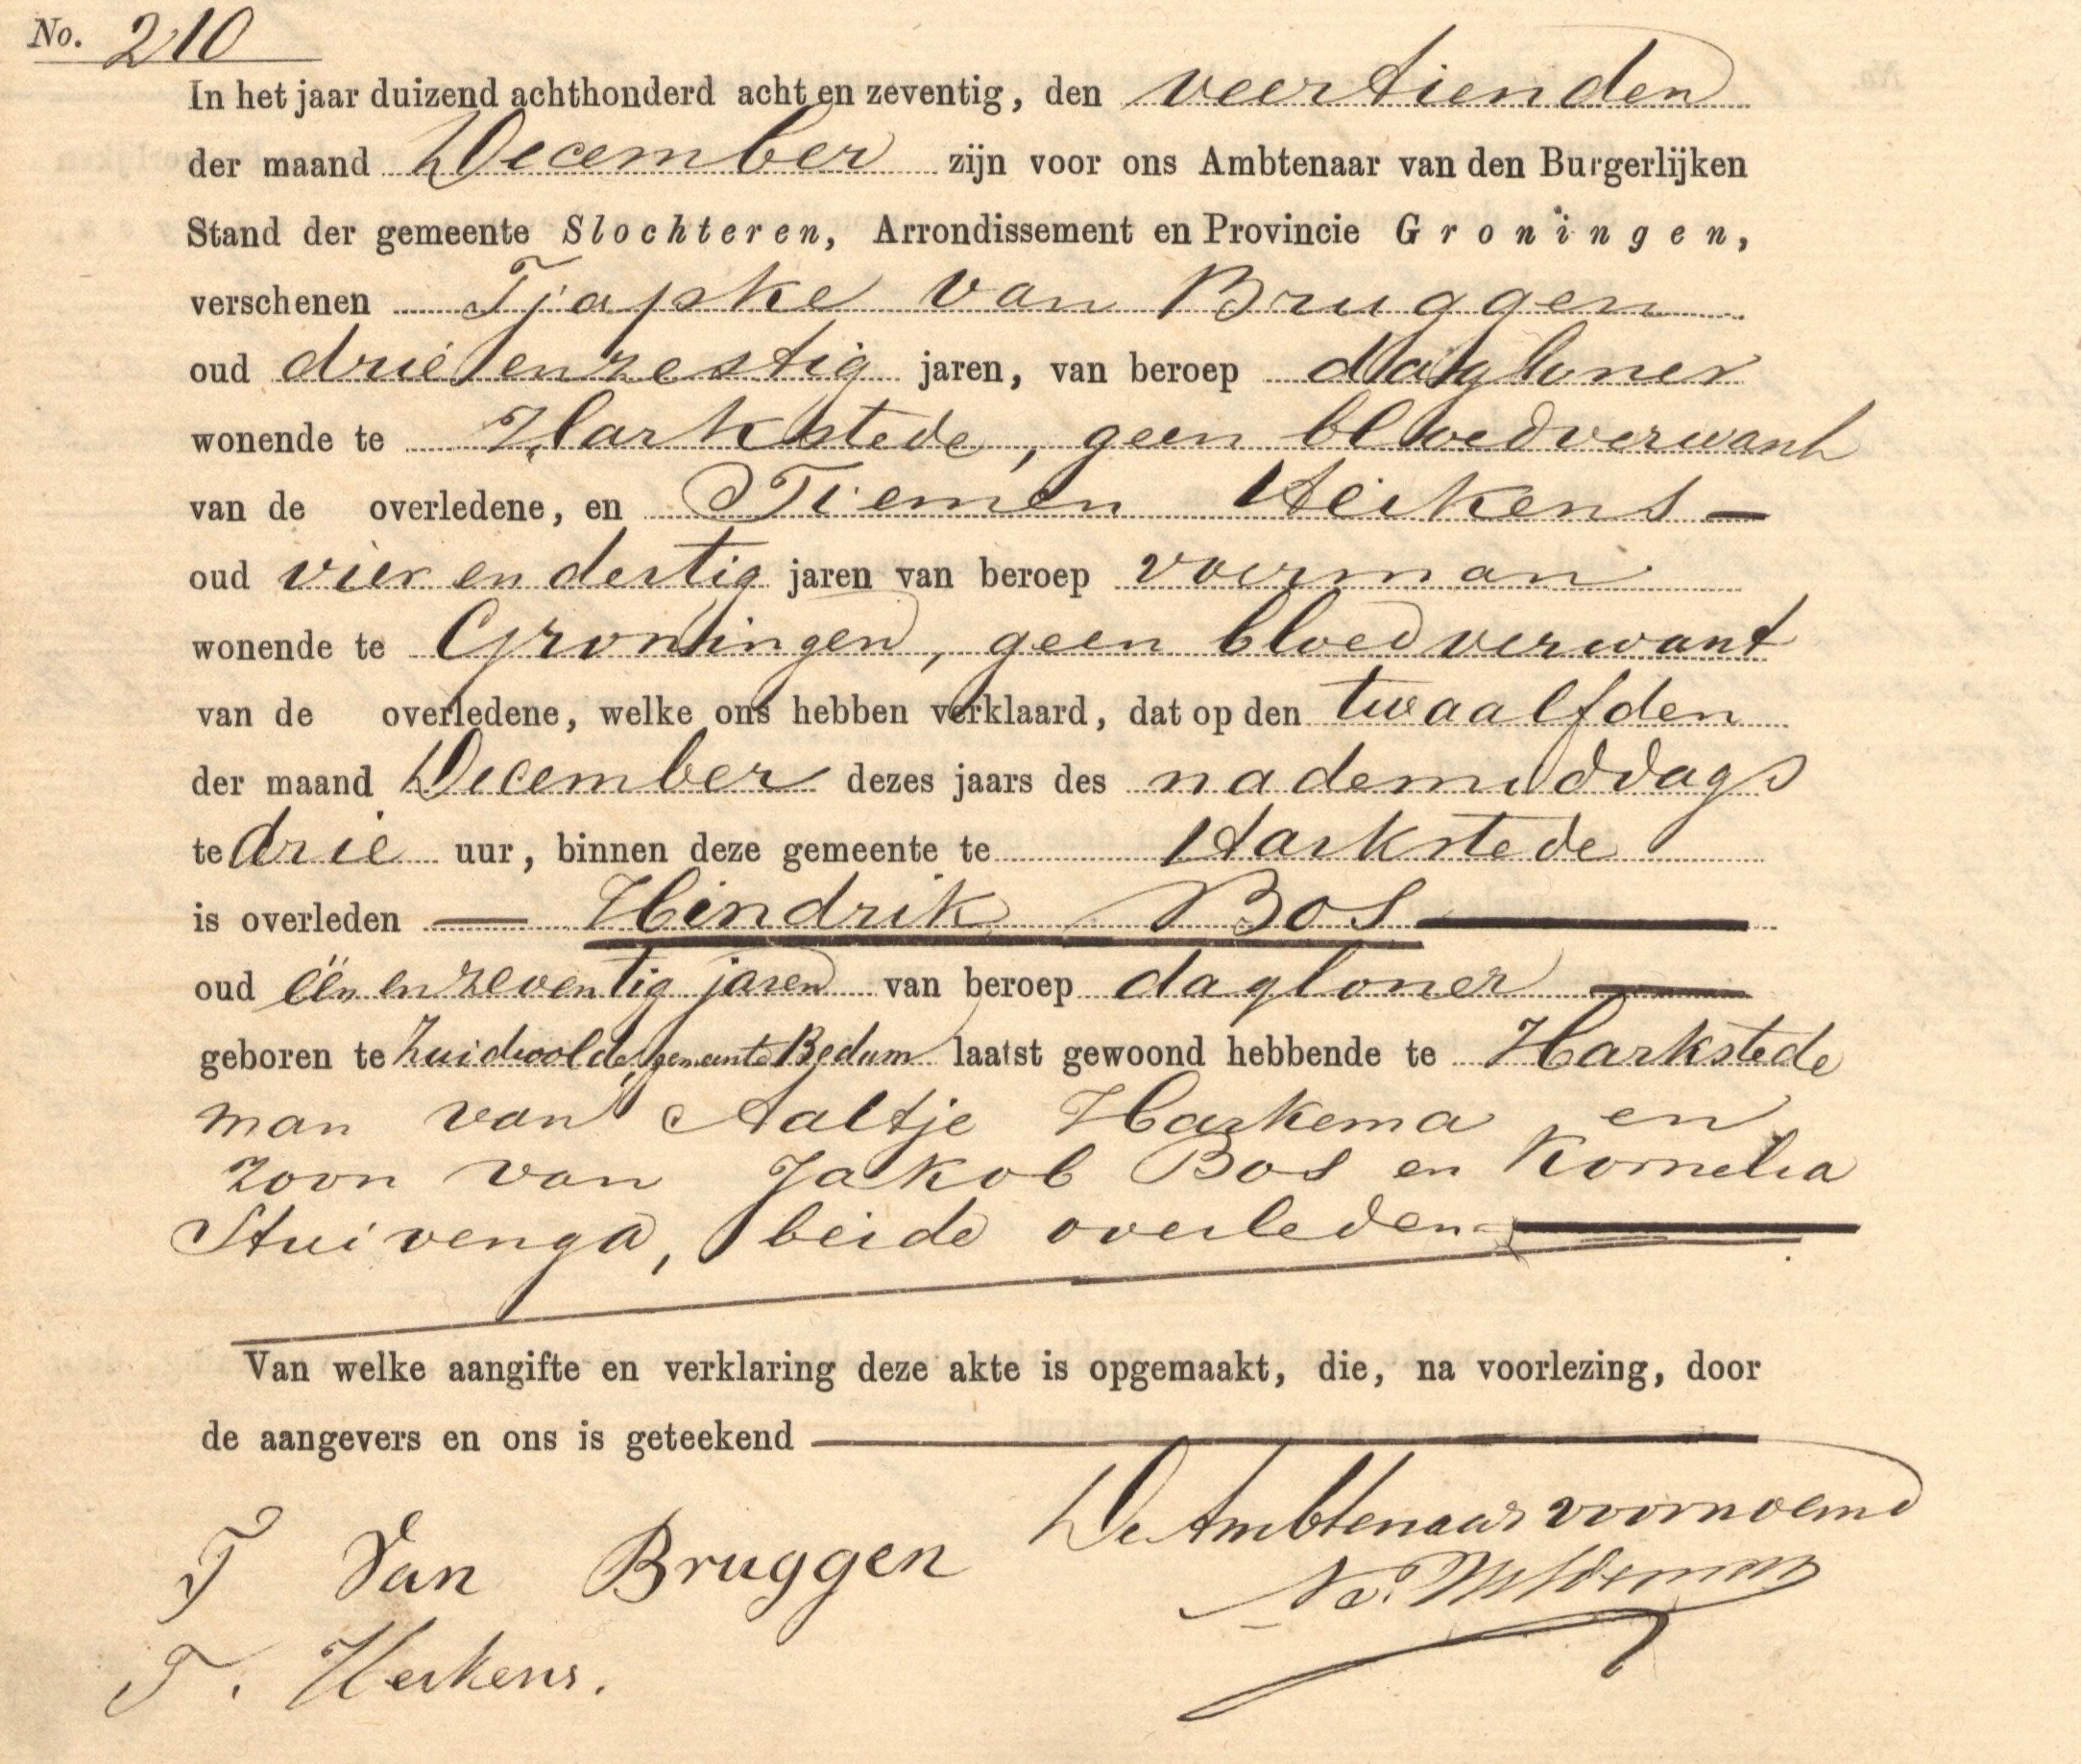 No. 210
In het jaar duizend achthonderd acht en zeventig, den veertienden
der maand December zijn voor ons Ambtenaar van den Burgerlijken
Stand der gemeente Slochteren, Arrondissement en Provincie Groningen,
verschenen Tjapke van Bruggen
oud drie en zestig jaren, van beroep dagloner
wonende te Harkstede, geen bloedverwant
van de overledene, en Tiemen Heikens
oud vier en dertig jaren van beroep voerman
wonende te Groningen, geen bloedverwant
van de overledene, welke ons hebben verklaard, dat op den twaalfden
der maand December dezes jaars des nademiddags
te drie uur, binnen deze gemeente te Harkstede
is overleden Hindrik Bos
oud één en zeventig jaren van beroep dagloner
geboren te Zuidwolde, gemeente Bedum laatst gewoond hebbende te Harkstede
man van Aaltje Harkema en
zoon van Jakob Bos en Kornelia
Stuivenga, beide overleden
Van welke aangifte en verklaring deze akte is opgemaakt, die, na voorlezing, door
de aangevers en ons is geteekend
De Ambtenaar voornoemd
T Van Bruggen
T. Heikens.